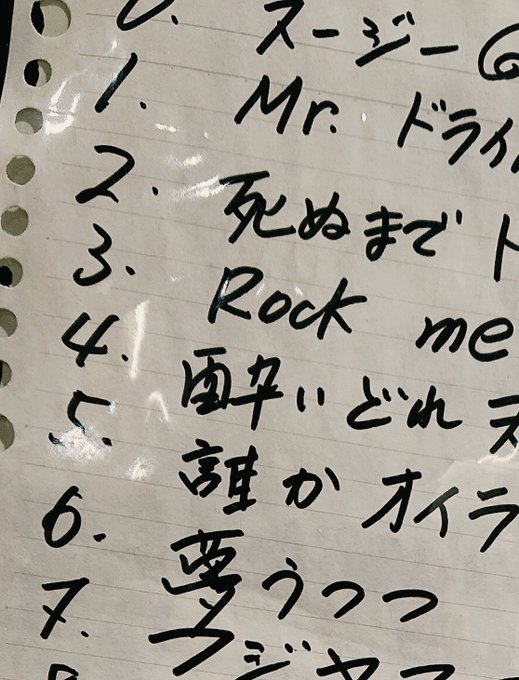 0. スージー
1. Mr. ドライ
2. 死ぬまで
3. Rock me
4. 酔いどれ
5. 誰か オイラ
6. 夢うつつ
7. フジヤマ